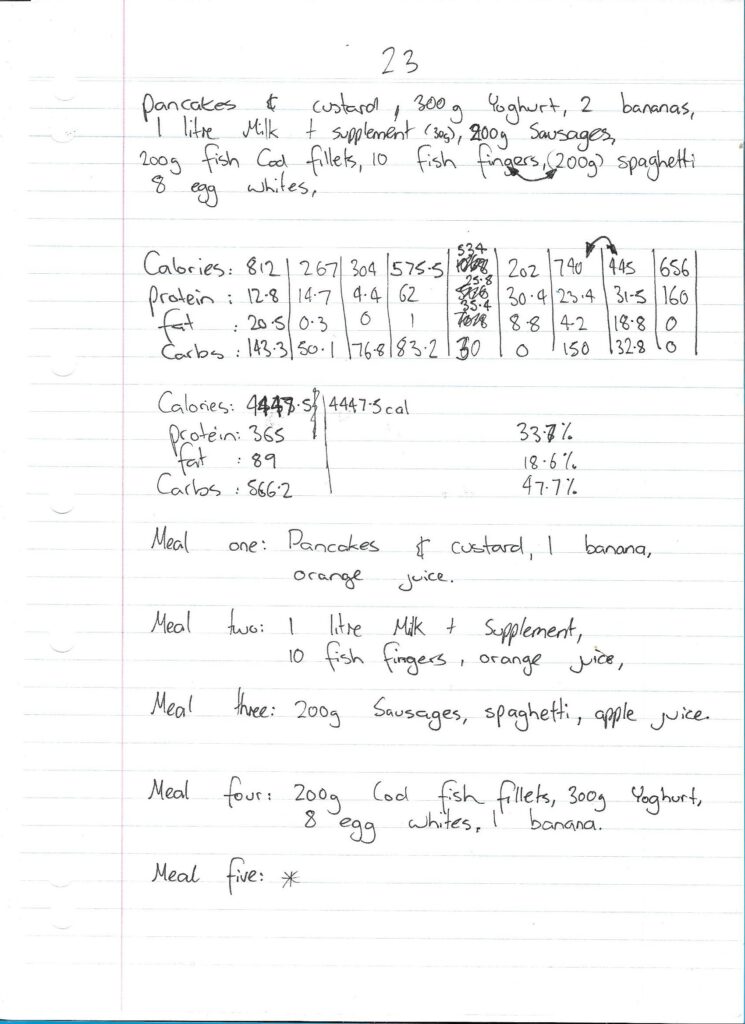 23
Pancakes & custard, 300g Yoghurt, 2 bananas,
1 litre Milk + supplement (30g), 200g Sausages,
200g fish Cod fillets, 10 fish fingers, (200g) spaghetti
8 egg whites,
534
Calories: 812 | 267 | 304 | 575.5 | | 202 | 740 | 445 | 656
25.8
Protein : 12.8 | 14.7 | 4.4 | 62 | | 30.4 | 23.4 | 31.5 | 160
35.4
fat : 20.5 | 0.3 | 0 | 1 | | 8.8 | 4.2 | 18.8 | 0
Carbs : 143.3 | 50.1 | 76.8 | 83.2 | 30 | 0 | 150 | 32.8 | 0
Calories: 4447.5 | 4447.5 cal
Protein: 365 33.7%
fat : 89 18.6%
Carbs : 566.2 47.7%
Meal one: Pancakes & custard, 1 banana,
orange juice.
Meal two: 1 litre Milk + Supplement,
10 fish fingers, orange juice,
Meal three: 200g Sausages, spaghetti, apple juice.
Meal four: 200g Cod fish fillets, 300g Yoghurt,
8 egg whites, 1 banana.
Meal five: *